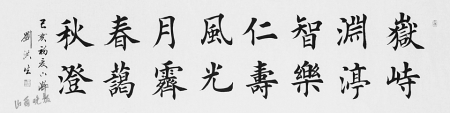 嶽峙
淵渟
智樂
仁壽
風光
月霽
春藹
秋澄
己亥初夏
劉洪生